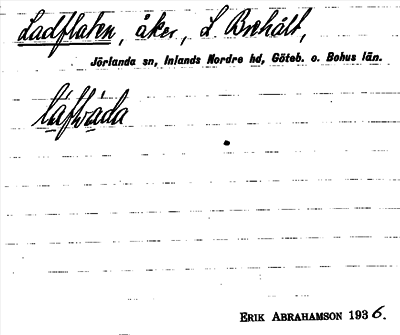 Ladflaten, åker, L. Brehált,
Jörlanda sn, Inlands Nordre hd, Göteb. o. Bohus län.
láfwáda
ERIK ABRAHAMSON 1936.